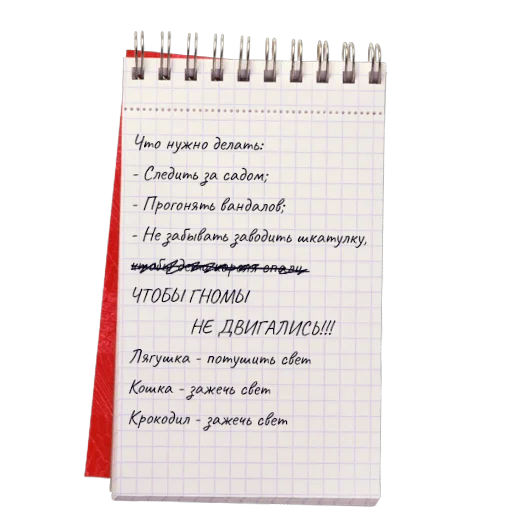 Что нужно делать:
- Следить за садом;
- Прогонять вандалов;
- Не забывать заводить шкатулку,
ЧТОБЫ ГНОМЫ
НЕ ДВИГАЛИСЬ!!!
Лягушка - потушить свет
Кошка - зажечь свет
Крокодил - зажечь свет